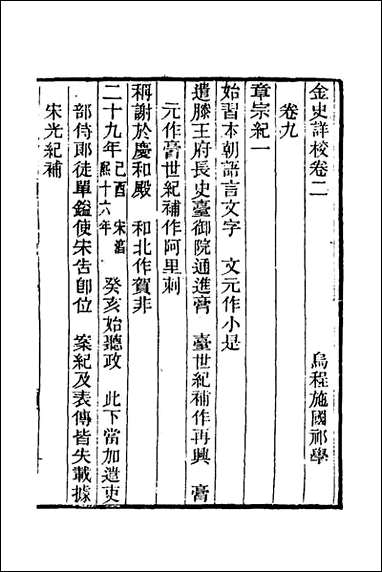 金史詳校卷二 烏程施國祁學
卷九
章宗紀一
始習本朝語言文字 文元作小是
遣滕王府長史臺御院通進膏 臺世紀補作再興 膏
元作膏世紀補作阿里剌
稱謝於慶和殿 和北作賀非
二十九年己酉 宋淳熙十六年 癸亥始聽政 此下當加遣吏
部侍郎徒單鎰使宋告卽位 案紀及表傳皆失載據
宋光紀補